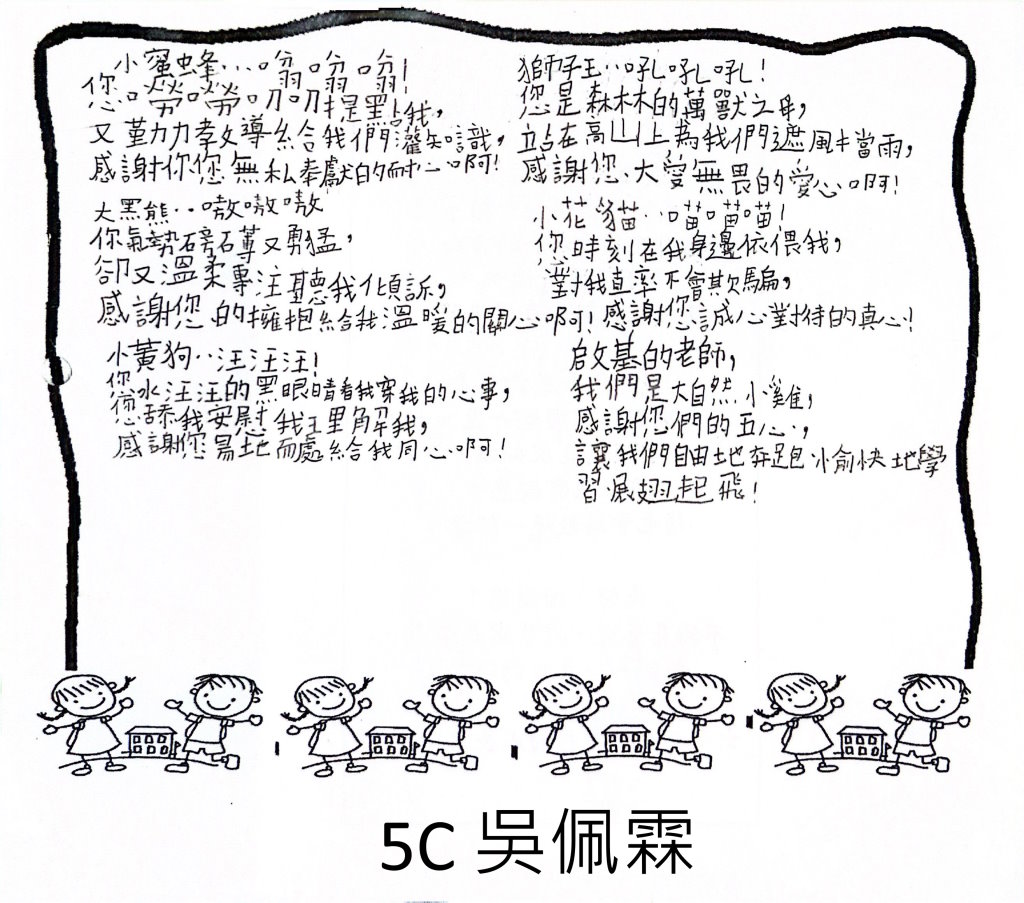 小蜜蜂…嗡嗡嗡!
您嘮嘮叨叨提點我,
又勤力教導給我們灌知識,
感謝你您無私奉獻的耐心啊!
大黑熊··嗷嗷嗷
你氣勢磅礡又勇猛,
卻又溫柔專注聽我傾訴,
感謝您的擁抱給我溫暖的關心啊!
小黃狗··汪汪汪!
您水汪汪的黑眼睛看我穿我的心事,
您舔我安慰我理解我,
感謝您易地而處給我同心啊!
獅子王··吼吼吼!
您是森林的萬獸之母,
站在高山上為我們遮風擋雨,
感謝您、大愛無畏的愛心啊!
小花貓··喵喵喵!
您時刻在我身邊依偎我,
對我直率不會欺騙,
感謝您誠心對待的真心!
啟基的老師,
我們是大自然小雞,
感謝您們的五心,
讓我們自由地奔跑愉快地學
習展翅起飛!
5C 吳佩霖